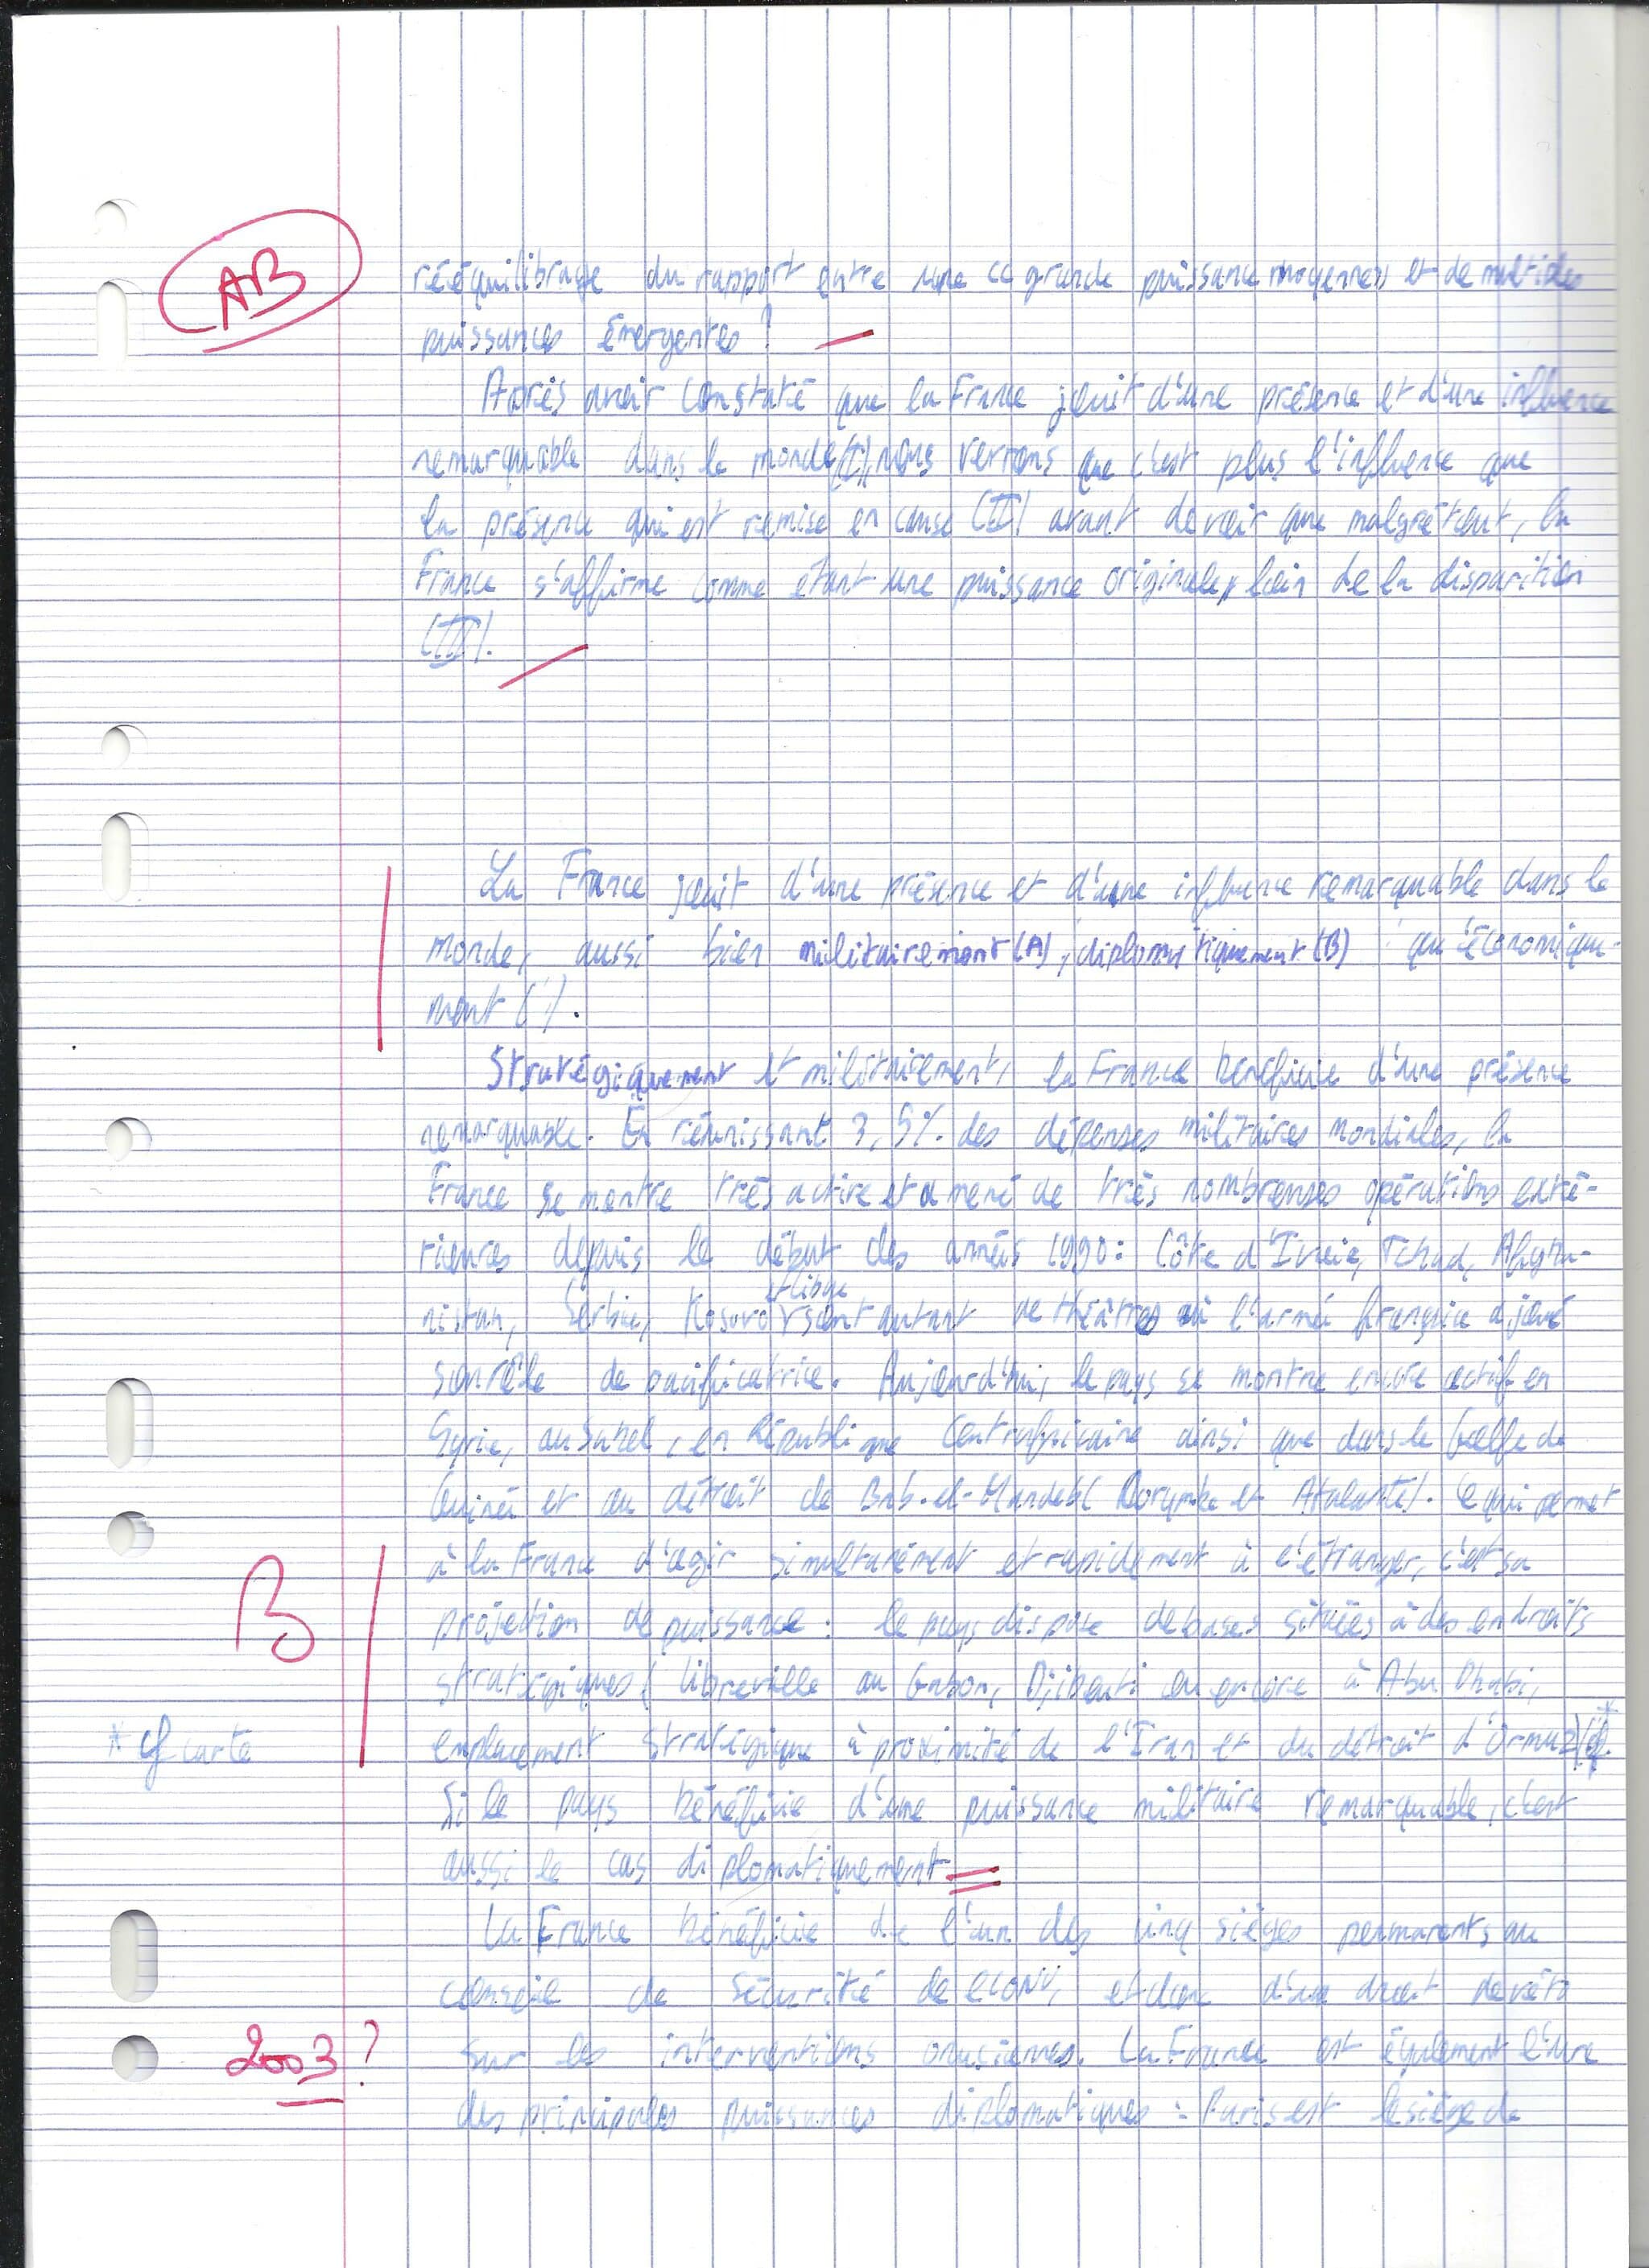 AB
rééquilibrage du rapport entre une « grande puissance moyenne » et de multiples
puissances émergentes ?
Après avoir constaté que la France jouit d'une présence et d'une influence
remarquable dans le monde (I), nous verrons que c'est plus l'influence que
la présence qui est remise en cause (II) avant de voir que malgré tout, la
France s'affirme comme étant une puissance originale, loin de la disparition
(III).
La France jouit d'une présence et d'une influence remarquable dans le
monde, aussi bien militairement (A), diplomatiquement (B) qu'économique-
ment (C).
Stratégiquement et militairement, la France bénéficie d'une présence
remarquable. En réunissant 3,5% des dépenses militaires mondiales, la
France se montre très active et a mené de très nombreuses opérations exté-
rieures depuis le début des années 1990 : Côte d'Ivoire, Tchad, Afgha-
nistan, Serbie, Kosovo, et Libye sont autant de théâtres où l'armée française a joué
son rôle de pacificatrice. Aujourd'hui, le pays se montre encore actif en
Syrie, au Sahel, en République Centrafricaine ainsi que dans le Golfe de
Guinée et au détroit de Bab-el-Mandeb (Corymbe et Atalante). Ce qui permet
à la France d'agir simultanément et rapidement à l'étranger, c'est sa
B
projection de puissance : le pays dispose de bases situées à des endroits
stratégiques (Libreville au Gabon, Djibouti ou encore à Abu Dhabi,
* cf carte
emplacement stratégique à proximité de l'Iran et du détroit d'Ormuz)*.
Si le pays bénéficie d'une puissance militaire remarquable, c'est
aussi le cas diplomatiquement
La France bénéficie de l'un des cinq sièges permanents au
conseil de sécurité de l'ONU, et donc d'un droit de véto
2003 ?
sur les interventions onusiennes. La France est également l'une
des principales puissances diplomatiques : Paris est le siège de